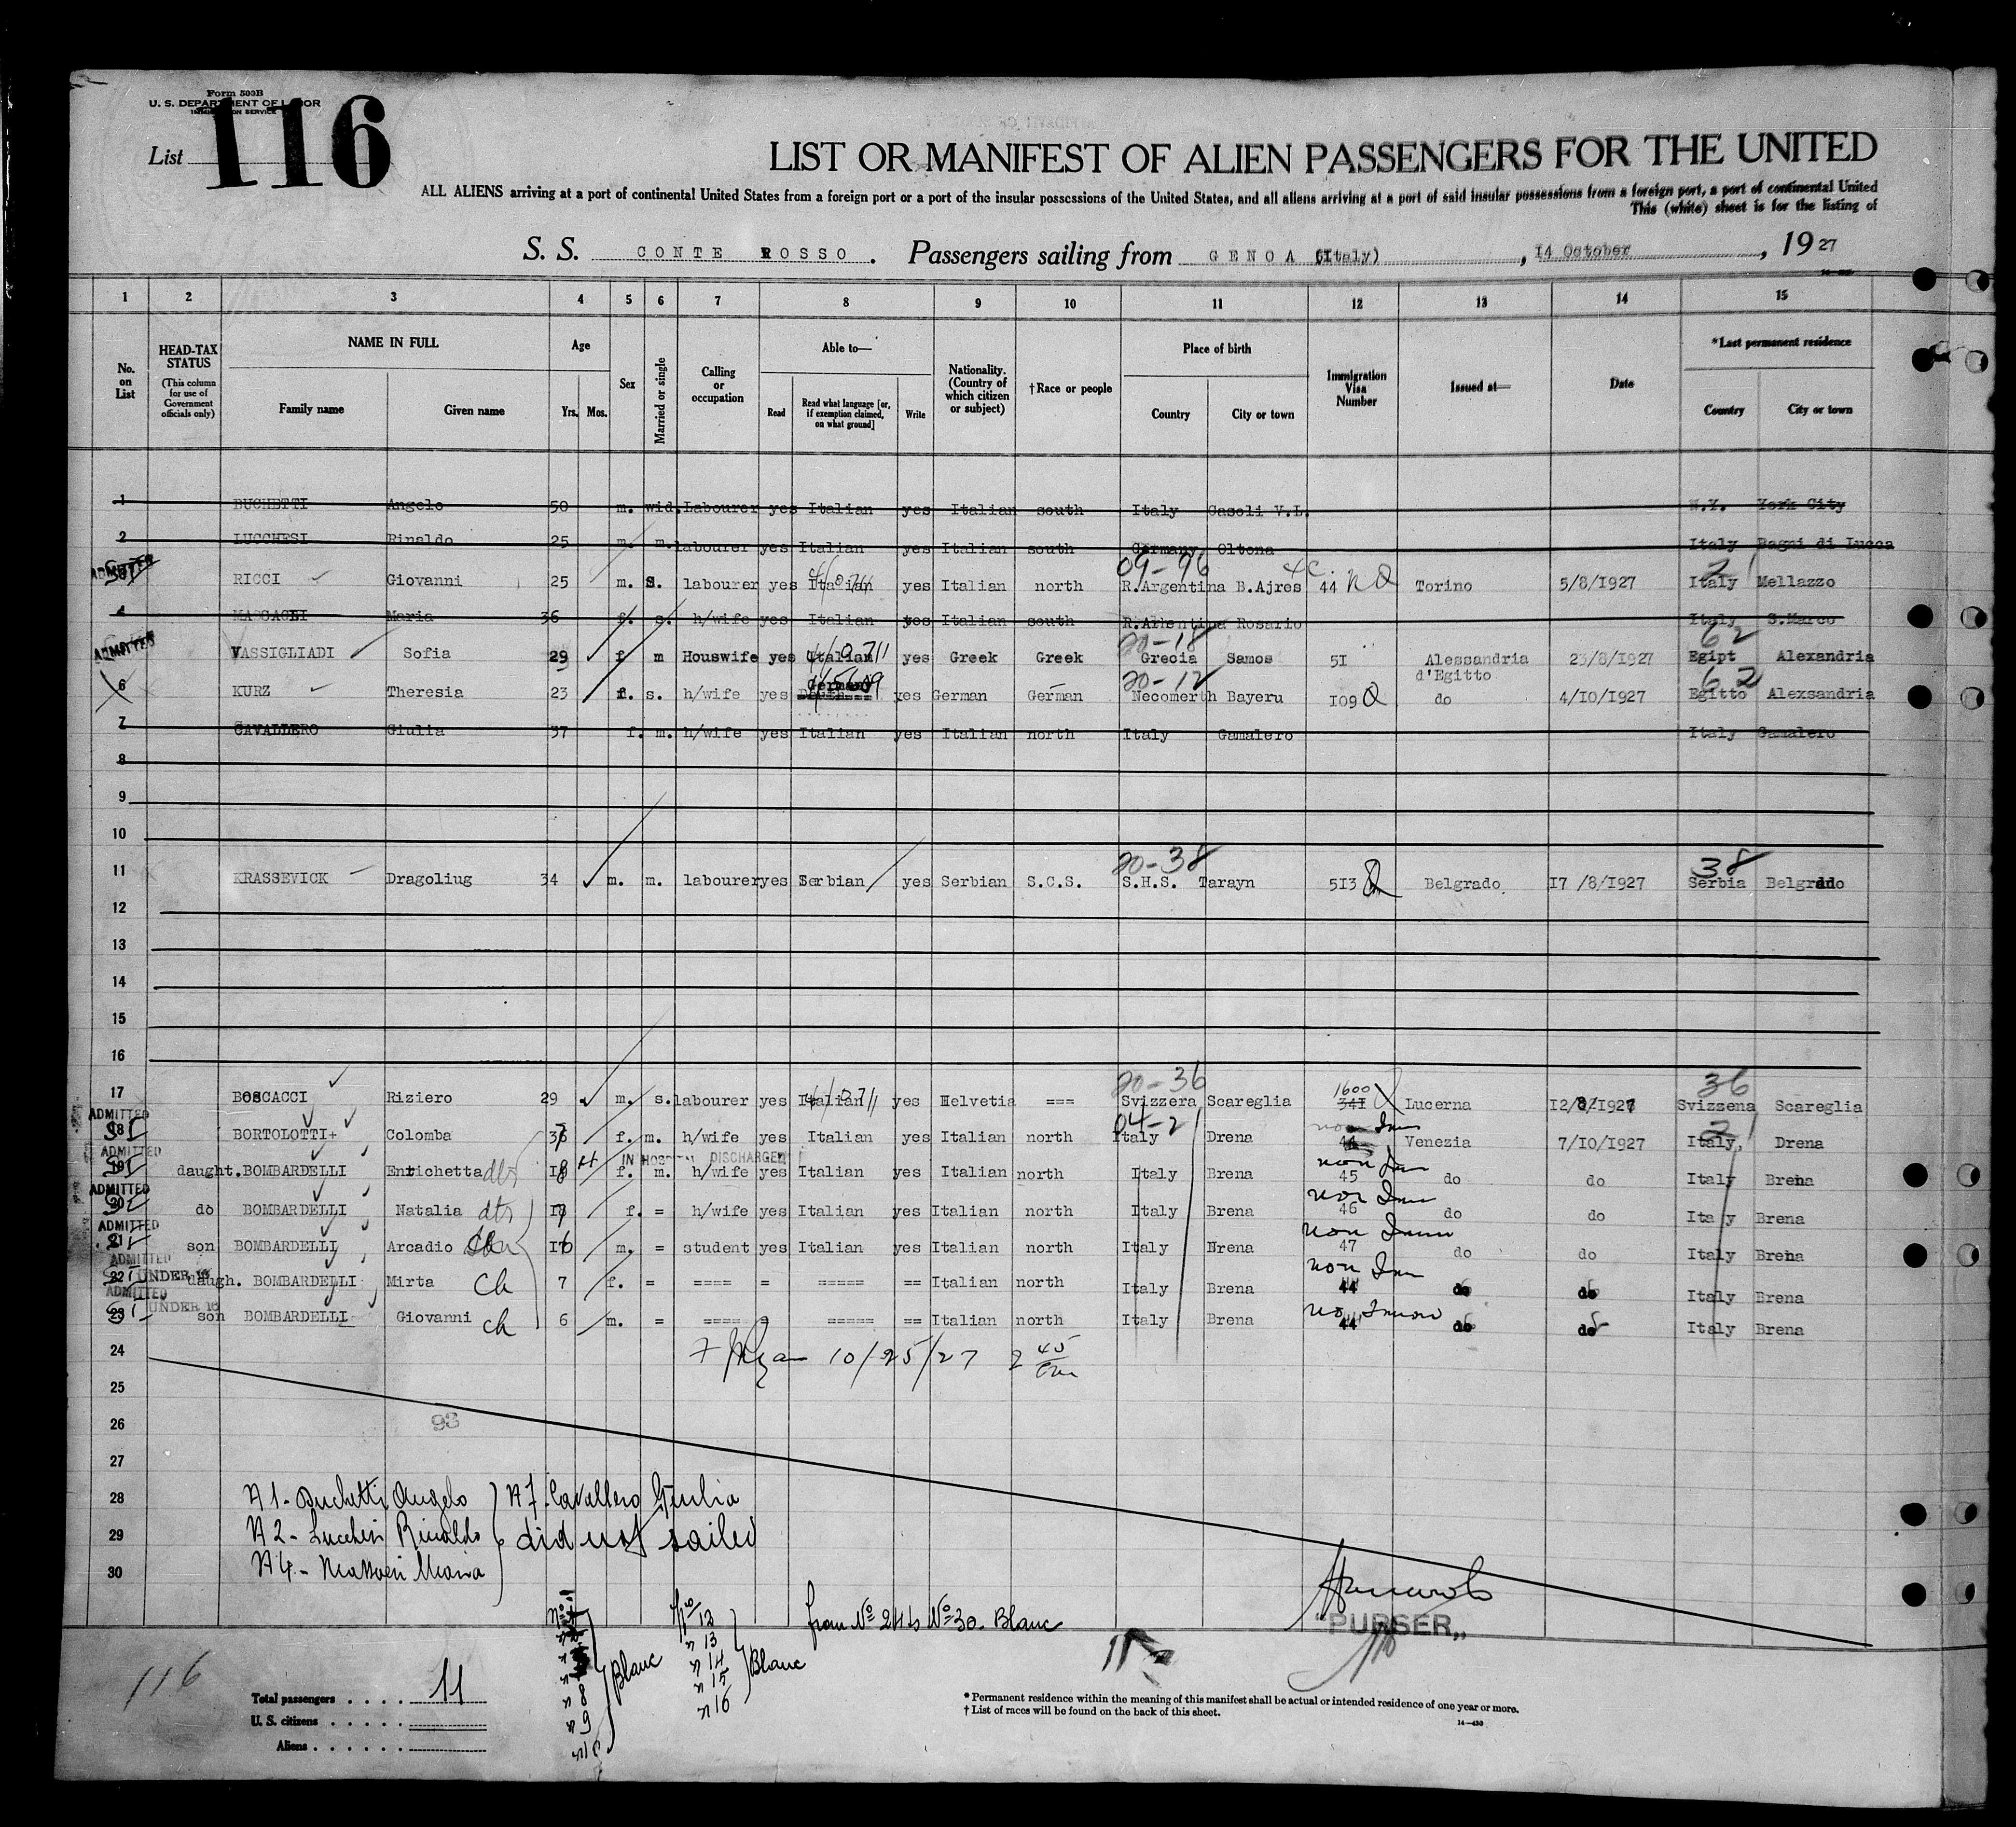 Form 500B
U. S. DEPARTMENT OF LABOR
IMMIGRATION SERVICE
List 116
LIST OR MANIFEST OF ALIEN PASSENGERS FOR THE UNITED
ALL ALIENS arriving at a port of continental United States from a foreign port or a port of the insular possessions of the United States, and all aliens arriving at a port of said insular possessions from a foreign port, a port of continental United
This (white) sheet is for the listing of
S. S. CONTE ROSSO . Passengers sailing from GENOA (Italy) , 14 October , 1927
1 2 3 4 5 6 7 8 9 10 11 12 13 14 15
No. on List
HEAD-TAX STATUS (This column for use of Government officials only)
NAME IN FULL
Family name Given name
Age
Yrs. Mos.
Sex
Married or single
Calling or occupation
Able to—
Read Read what language [or, if exemption claimed, on what ground] Write
Nationality. (Country of which citizen or subject)
†Race or people
Place of birth
Country City or town
Immigration Visa Number
Issued at—
Date
*Last permanent residence
Country City or town
1 BUCHETTI Angelo 50 m. wid. Labourer yes Italian yes Italian south Italy Casoli V.L. N.Y. York City
2 LUCCHESI Rinaldo 25 m. m. labourer yes Italian yes Italian south Germany Oltona Italy Bagni di Lucca
09-96
ADMITTED RICCI Giovanni 25 m. S. labourer yes Italian yes Italian north R.Argentina B.Ajres 44 Torino 5/8/1927 Italy Mellazzo
4 MASSACEI Maria 36 f. s. h/wife yes Italian yes Italian south R.Arhentina Rosario Italy S.Marco
20-18 62
ADMITTED VASSIGLIADI Sofia 29 f m Houswife yes Italian yes Greek Greek Grecia Samos 51 Alessandria d'Egitto 23/8/1927 Egipt Alexandria
20-12 62
6 KURZ Theresia 23 f. s. h/wife yes German yes German German Necomerth Bayeru 109 do 4/10/1927 Egitto Alexsandria
7 CAVALLERO Giulia 37 f. m. h/wife yes Italian yes Italian north Italy Gamalero Italy Gamalero
8
9
10
20-38 38
11 KRASSEVICK Dragoliug 34 m. m. labourer yes Serbian yes Serbian S.C.S. S.H.S. Tarayn 513 Belgrado 17 /8/1927 Serbia Belgrado
12
13
14
15
16
20-36 1600 36
17 BOSCACCI Riziero 29 m. s. labourer yes Italian yes Helvetia === Svizzera Scareglia 341 Lucerna 12/8/1927 Svizzena Scareglia
04-2
ADMITTED 18 BORTOLOTTI+ Colomba f. m. h/wife yes Italian yes Italian north Italy Drena 44 Venezia 7/10/1927 Italy, Drena
IN HOSPITAL DISCHARGED
ADMITTED 19 daught. BOMBARDELLI Enrichetta 18 f. m. h/wife yes Italian yes Italian north Italy Brena 45 do do Italy Brena
ADMITTED 20 do BOMBARDELLI Natalia f. = h/wife yes Italian yes Italian north Italy Brena 46 do do Italy Brena
ADMITTED 21 son BOMBARDELLI Arcadio 16 m. = student yes Italian yes Italian north Italy Nrena 47 do do Italy Brena
ADMITTED 22 UNDER 16 daugh. BOMBARDELLI Mirta ch 7 f. = ==== = ===== == Italian north Italy Brena 44 do do Italy Brena
ADMITTED 23 UNDER 16 son BOMBARDELLI Giovanni ch 6 m. = ==== = ===== == Italian north Italy Brena 44 do do Italy Brena
24 10/25/27 2 45
25
26 93
27
28 N 1 - Buchetti Angelo N 7. Cavallero Giulia
29 N 2 - Lucchesi Rinaldo did not sailed
30 N 4 - Massacei Maria
from Nº 24 to Nº 30. Blanc
Nº 12
n 13
n 14
n 15
n 16
Blanc
n 8
n 9
n 10
Blanc
"PURSER"
116
Total passengers . . . . 11
U. S. citizens . . . . .
Aliens . . . . . .
* Permanent residence within the meaning of this manifest shall be actual or intended residence of one year or more.
† List of races will be found on the back of this sheet.
14—430